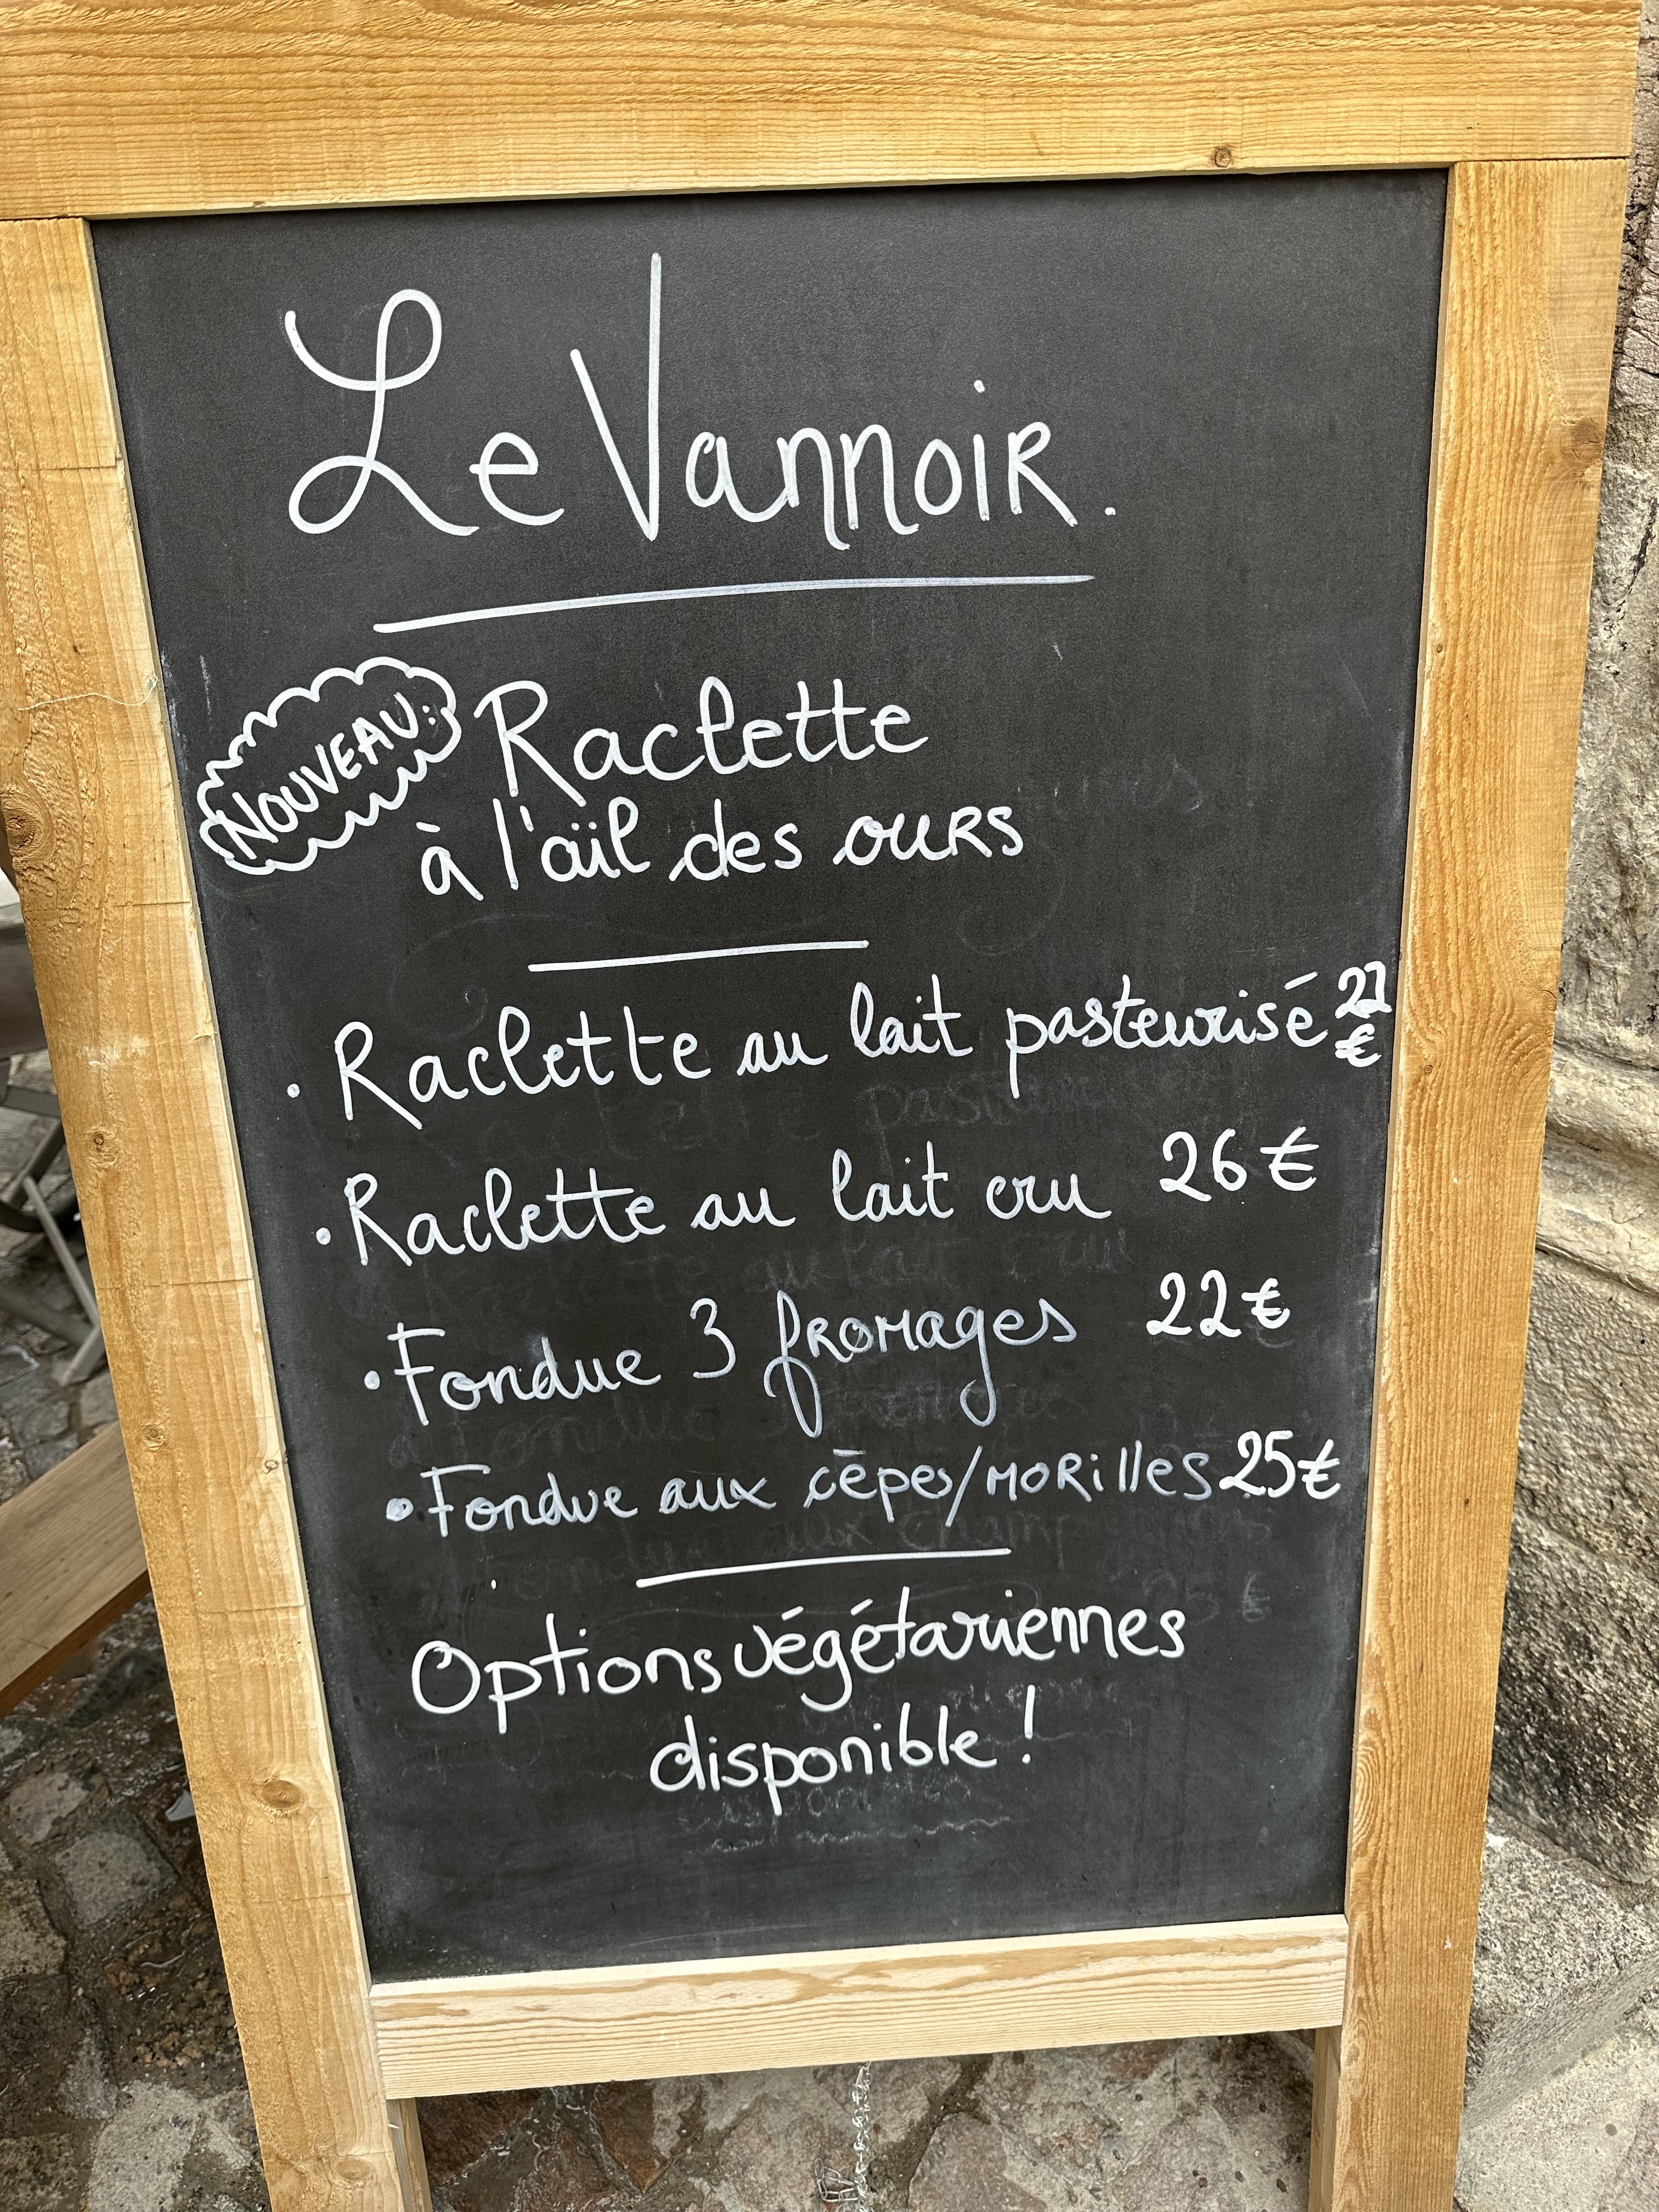 Le Vannoir.
NOUVEAU: Raclette
à l'aïl des ours
· Raclette au lait pasteurisé
€
· Raclette au lait cru 26€
· Fondue 3 fromages 22€
· Fondue aux cēpes/morilles 25€
Options végétariennes
disponible !